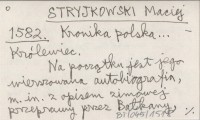 STRYJKOWSKI Maciej
1582. Kronika polska...
Królewiec.
Na początku jest jego
wierszowana autobiografia,
m.in. z opisem zimowej
przeprawy przez Bałkany.